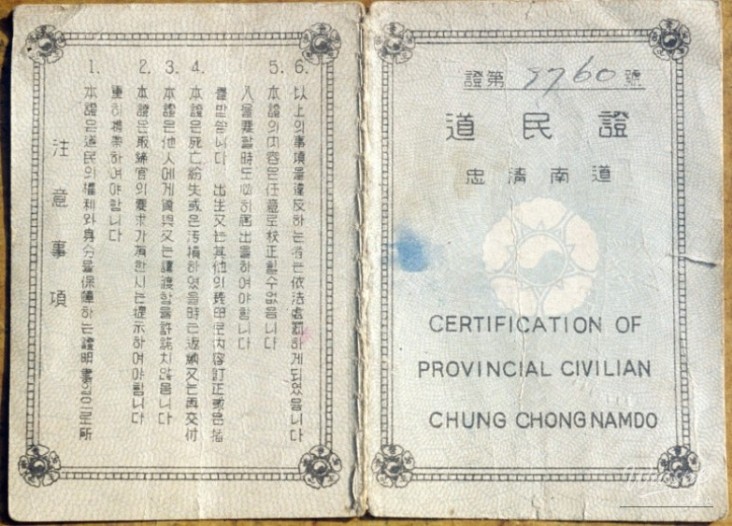 注意事項
1. 本證은道民의權利와身分을保障하는證明書임으로所
重히携帶하여야합니다
2. 本證은取締官의要求가有한時는提示하여야합니다
3. 本證은他人에게貸與又는讓渡함을許諾치않읍니다
4. 本證은死亡紛失或은汚損하였을時는返納又는再交付
를받읍니다 出生又는其他의理由로內容訂正或은揷
入을要할時도必히屆出을하여야합니다
5. 本證의內容은任意로校正할수없읍니다
6. 以上의事項을違反하는者는依法處罰하게되었읍니다
證第 5760 號
道民證
忠淸南道
CERTIFICATION OF
PROVINCIAL CIVILIAN
CHUNG CHONG NAMDO